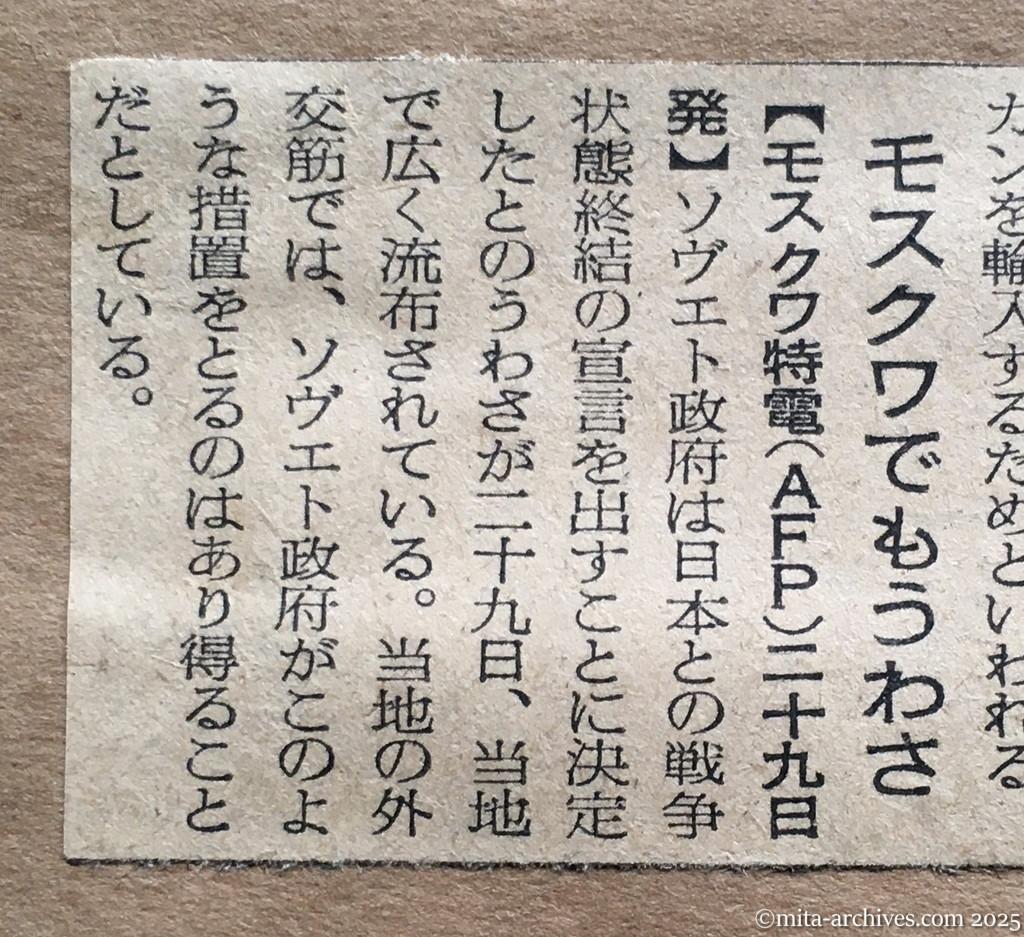 カンを輸入するためといわれる
モスクワでもうわさ
【モスクワ特電(AFP)二十九日
発】ソヴエト政府は日本との戦争
状態終結の宣言を出すことに決定
したとのうわさが二十九日、当地
で広く流布されている。当地の外
交筋では、ソヴエト政府がこのよ
うな措置をとるのはあり得ること
だとしている。
©mita-archives.com 2025